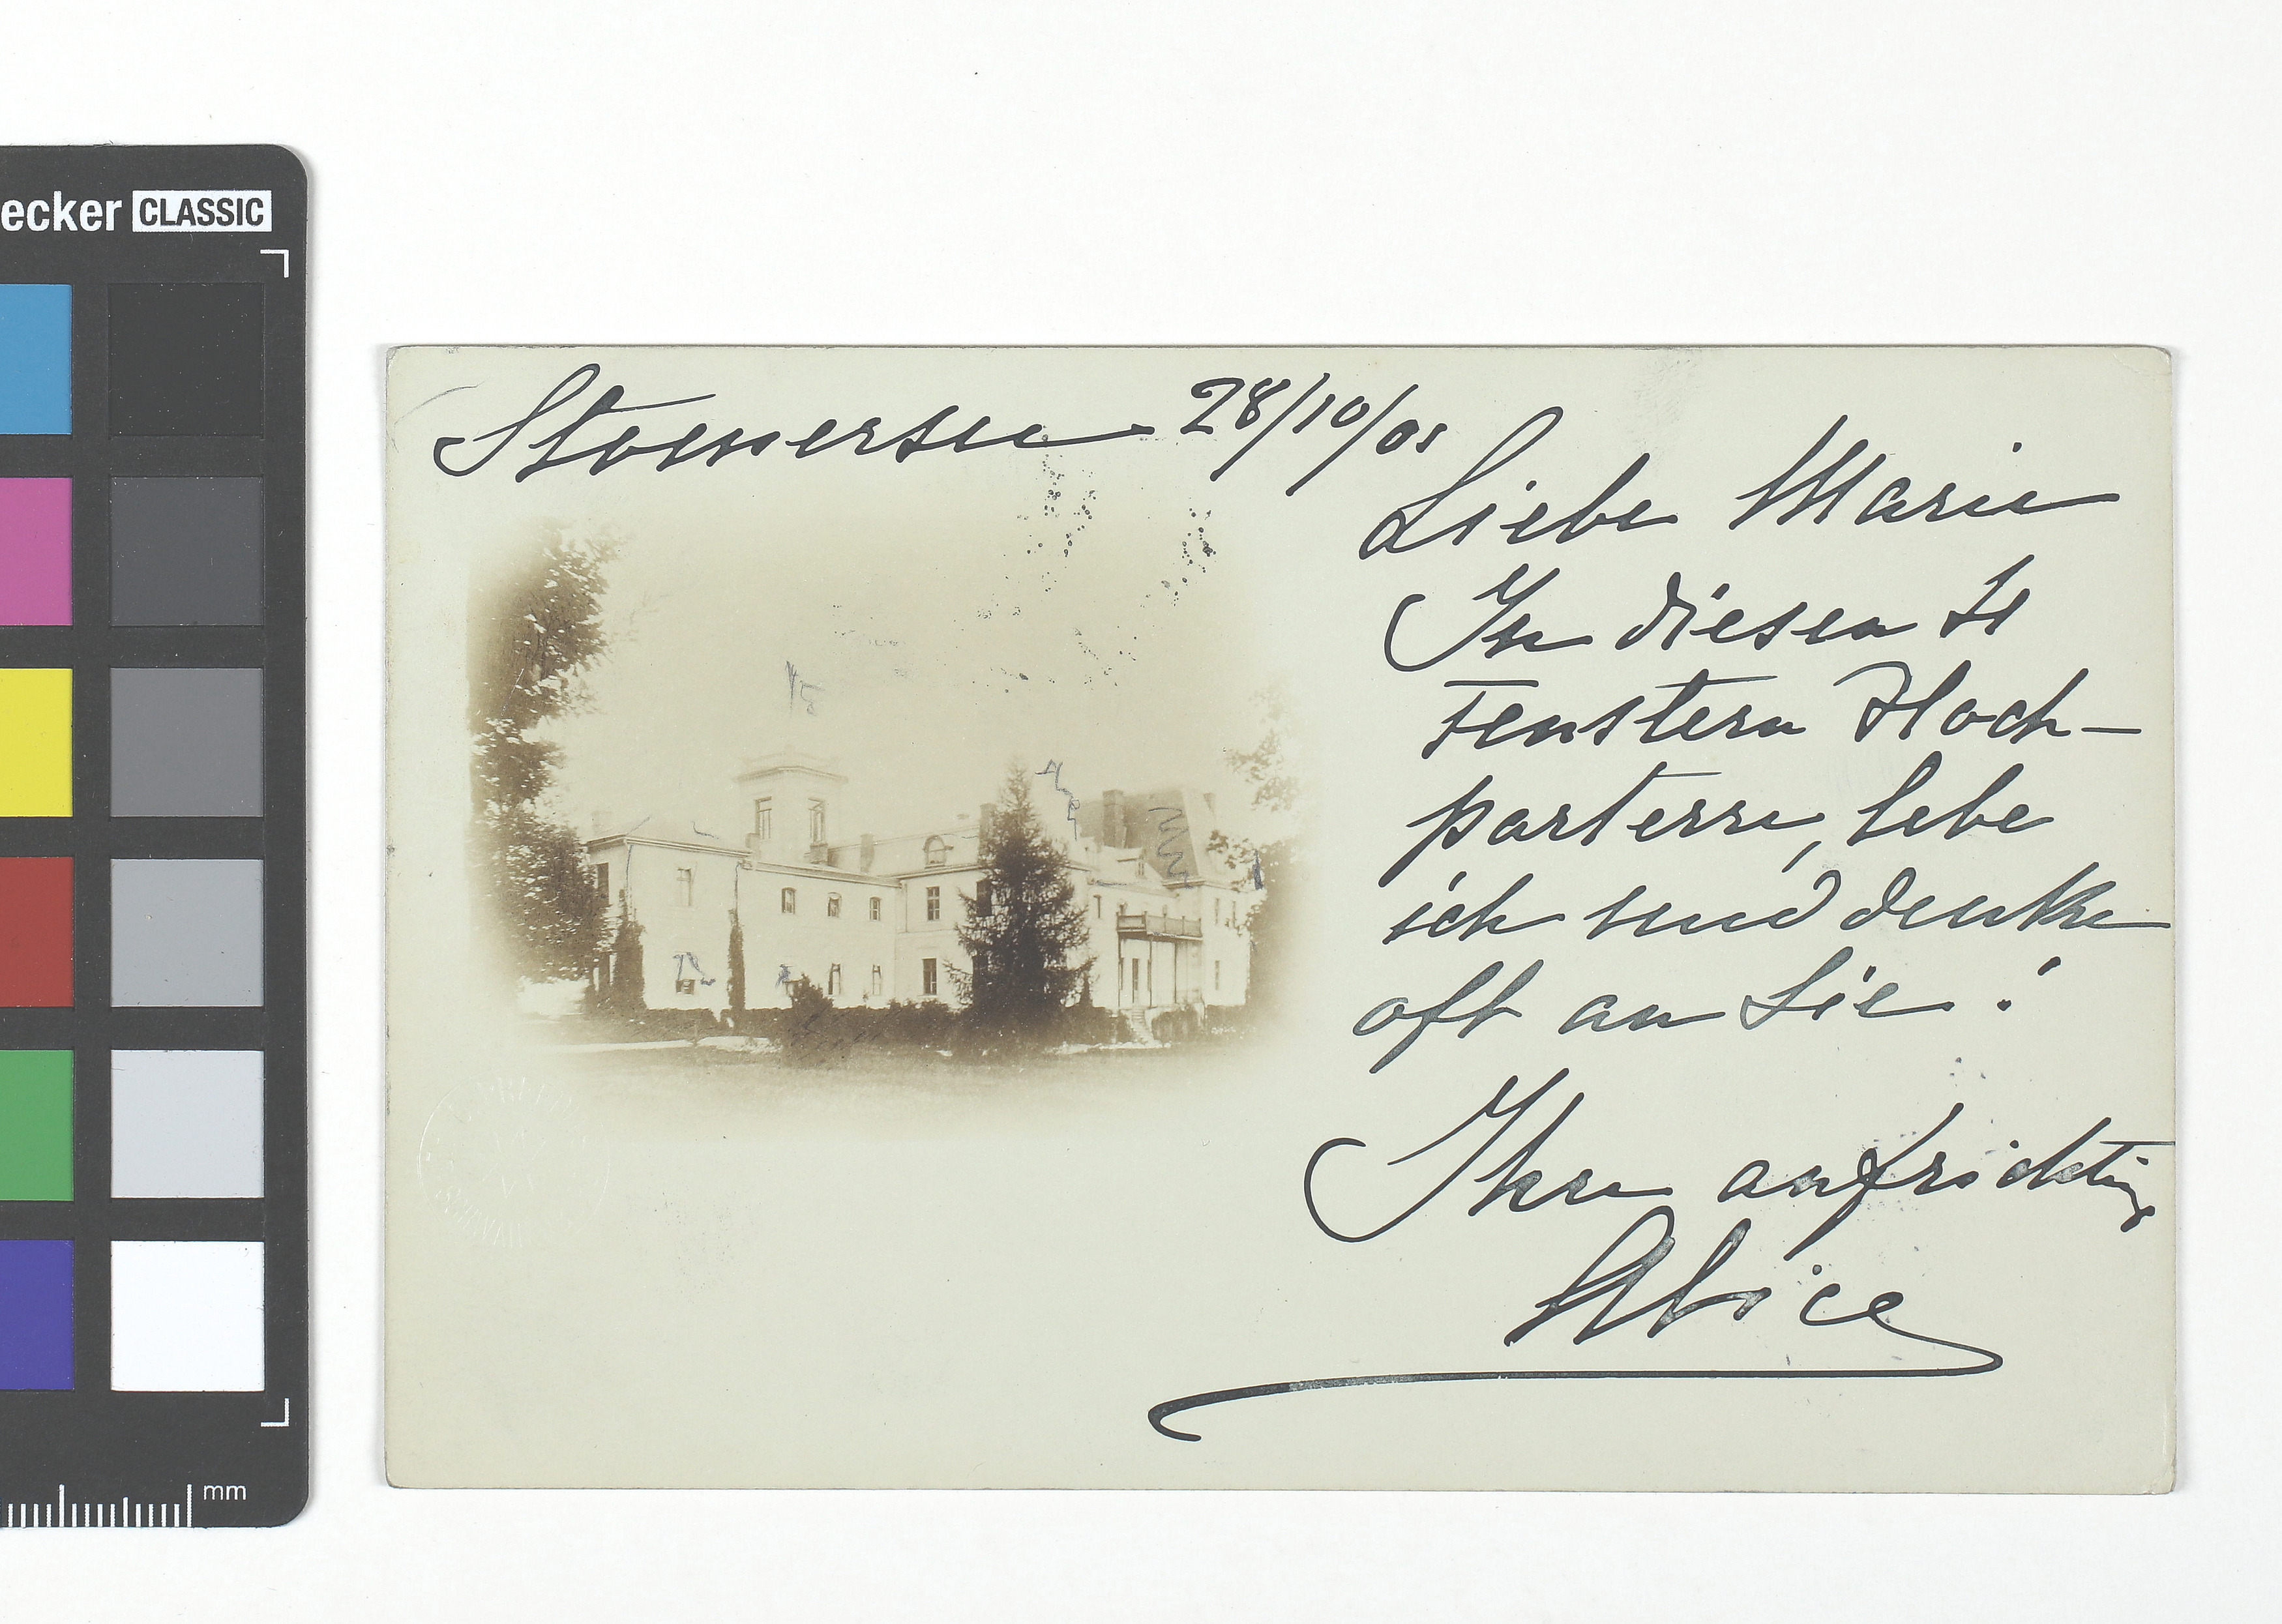 ecker CLASSIC
mm
Stomersee 28/10/01
Liebe Marie
In diesen
Fenstern Hoch-
parterre, lebe
ich und denke
oft an Sie!
Ihre aufrichtig
Alice